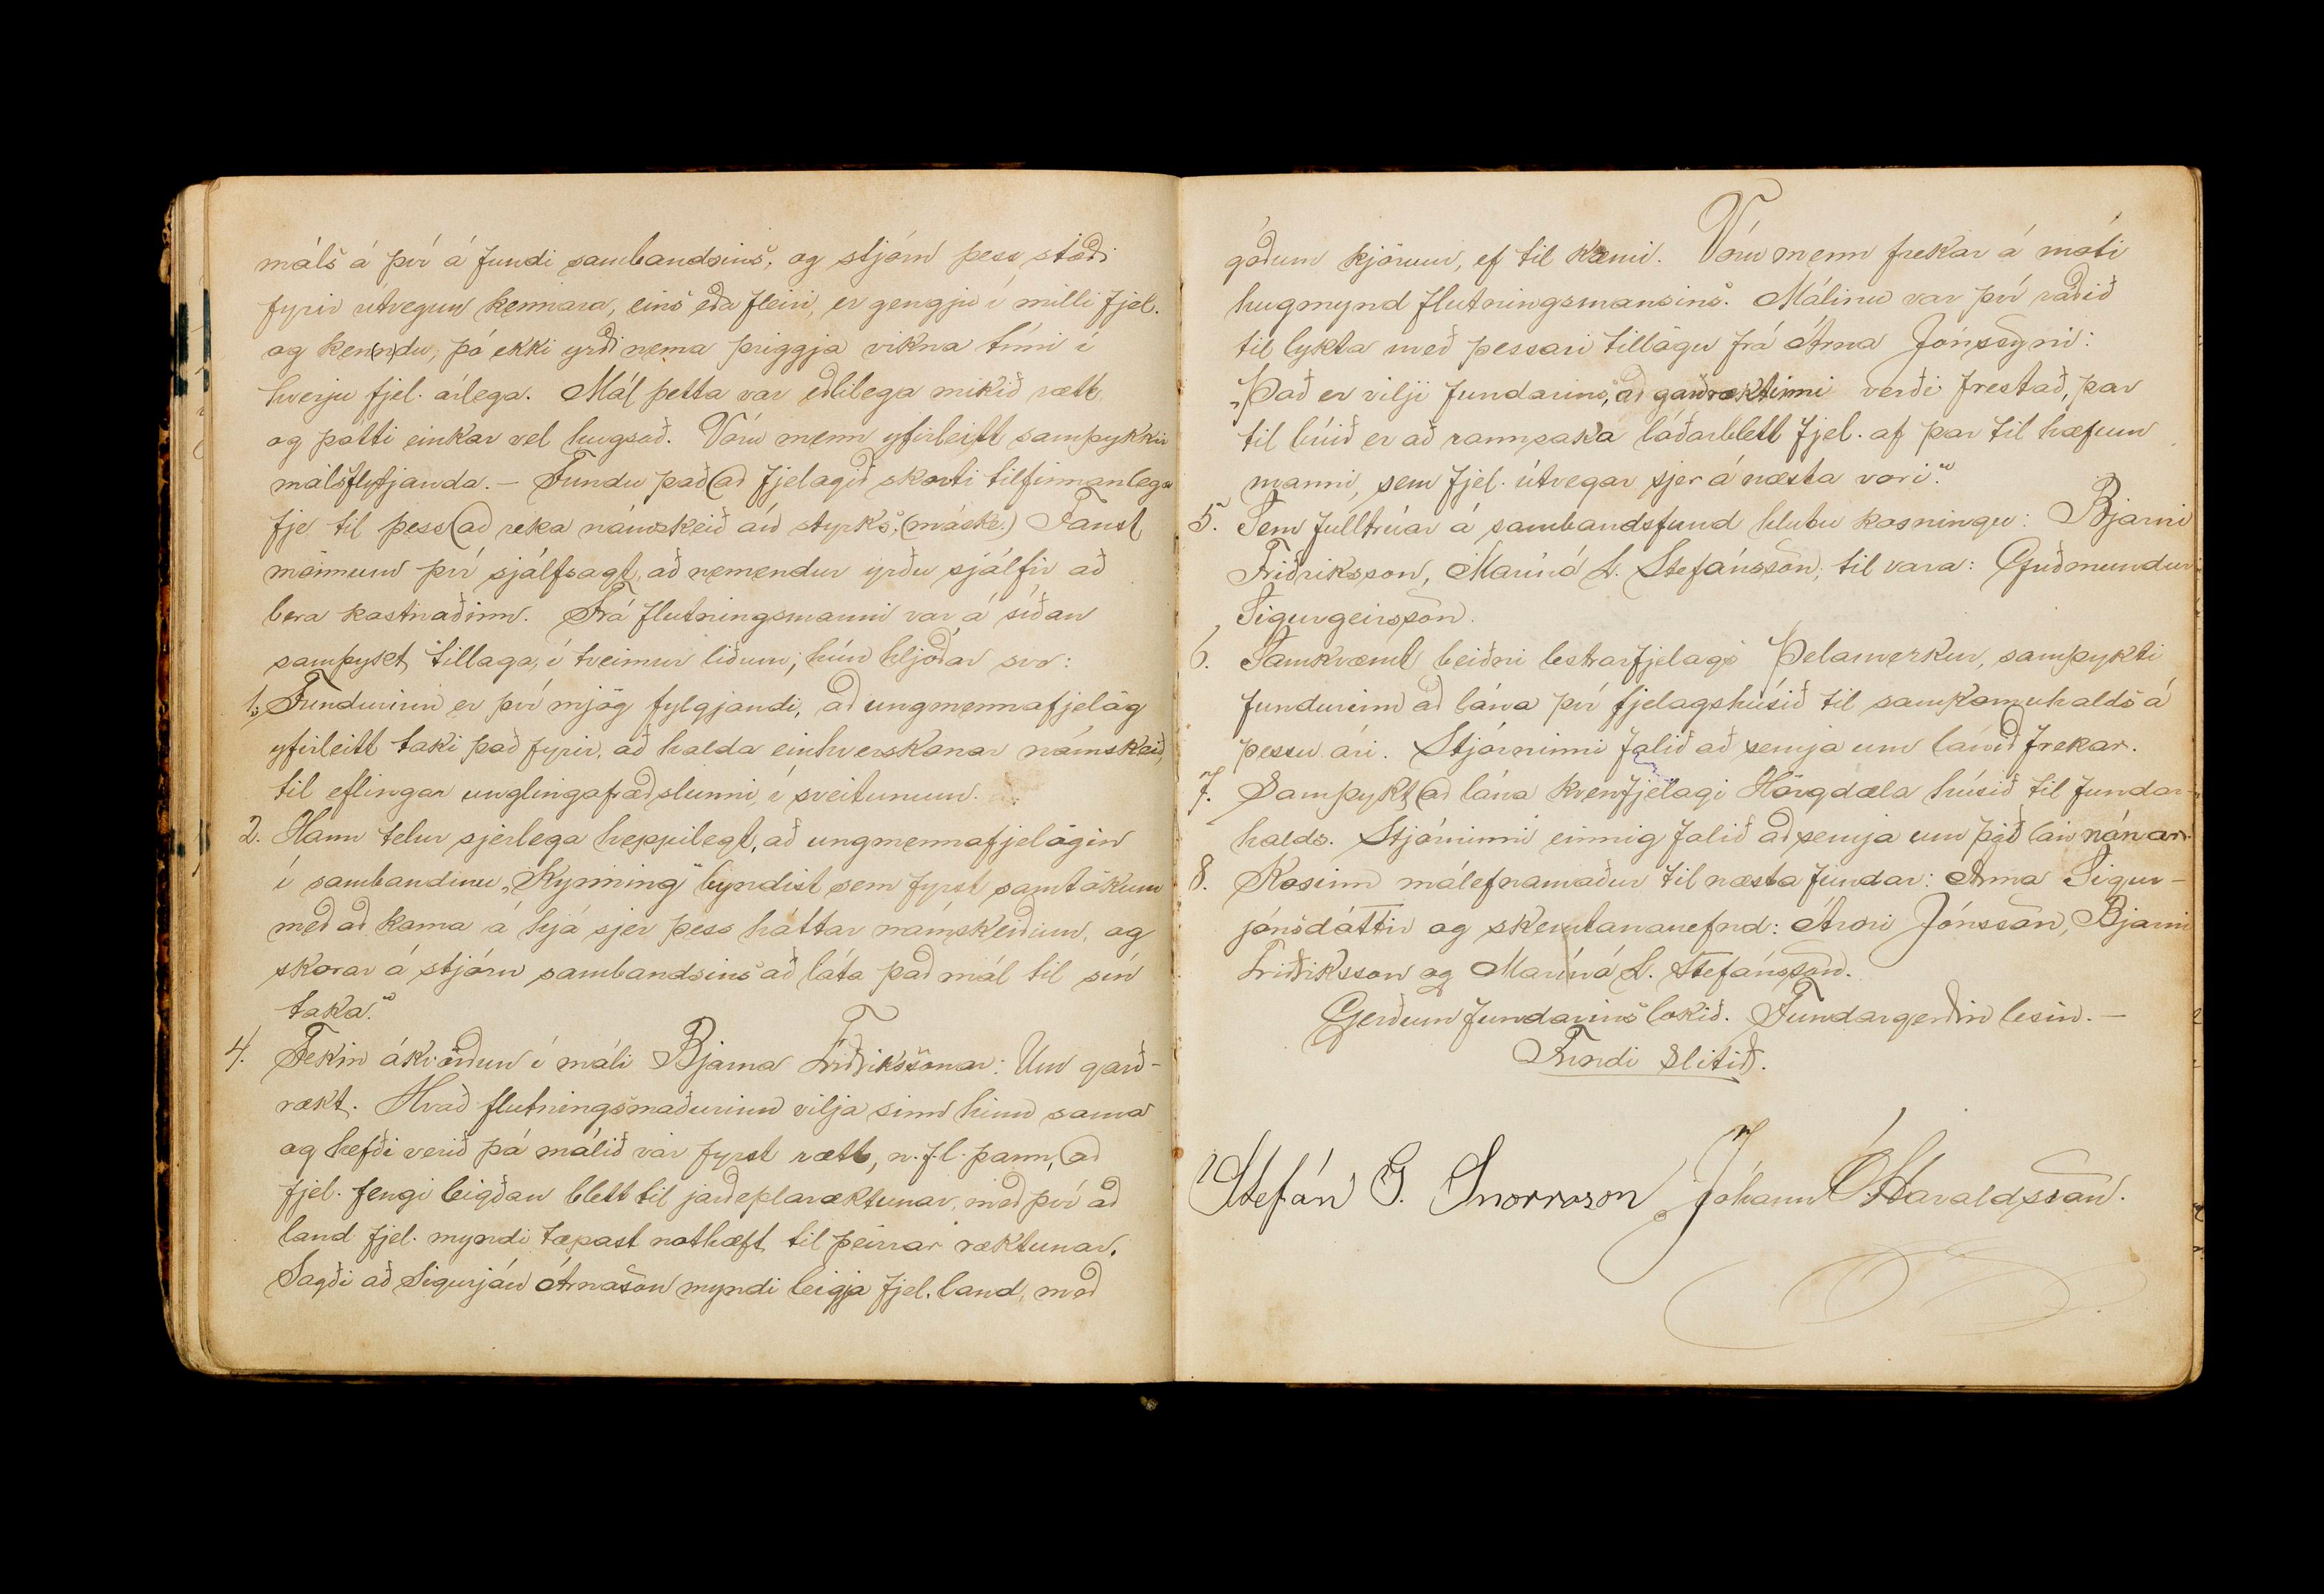 máls á því á fundi sambandsins, og stjórn þess stæði
fyrir útvegun kennara, eins eða fleiri, er gengju í milli fjel.
og ken(n)du, þó ekki yrði nema þriggja vikna tími í
hverju fjel. árlega. Mál þetta var eðlilega mikið rætt,
og þótti einkar vel hugsað. Vóru menn yfirleitt samþykkir
málsflytjanda. – Fundu það að fjelagið skorti tilfinnanlega
fje til þess að reka námskeið án styrks, (máske.) Fanst
mönnum því sjálfsagt, að nemendur yrðu sjálfir að
bera kostnaðinn. Frá flutningsmanni var á síðan
samþykt tillaga, í tveimur liðum; hún hljóðar svo:
1. „Fundurinn er því mjög fylgjandi, að ungmennafjelög
yfirleitt taki það fyrir, að halda einhverskonar námskeið,
til eflingar unglingafræðslunni, í sveitunum.
2. Hann telur sjerlega heppilegt, að ungmennafjelögin
í sambandinu „Kynning" byndist sem fyrst samtökum
með að koma á hjá sjer þess háttar námskeiðum, og
skorar á stjórn sambandsins að láta það mál til sín
taka."
4. Tekin ákvörðun í máli Bjarna Friðrikssonar: Um garð-
rækt. Hvað flutningsmaðurinn vilja sinn hinn sama
og hefði verið þá málið var fyrst rætt, n.f.l. þann, að
fjel. fengi leigðan blett til jarðeplaræktunar, með því að
land fjel. myndi tæpast nothæft til þeirrar ræktunar.
Sagði að Sigurjón Árnason myndi leigja fjel. land, með
góðum kjörum, ef til kæmi. Vóru menn frekar á móti
hugmynd flutningsmansins. Málinu var því ráðið
til lykta með þessari tillögu frá Árna Jónssyni:
„Það er vilji fundarins, að garðræktinni verði frestað, þar
til búið er að rannsaka láðarblett fjel. af þar til hæfum
manni, sem fjel. útvegar sjer á næsta vori."
5. Sem fulltrúar á sambandsfund hlutu kosningu: Bjarni
Friðriksson, Marinó L. Stefánsson; til vara: Guðmundur
Sigurgeirsson.
6. Samkvæmt beiðni lestrarfjelags Þelamerkur, samþykti
fundurinn að lána því fjelagshúsið til samkomuhalds á
þessu ári. Stjórninni falið að semja um lánið frekar.
7. Samþykt að lána kvenfjelagi Hörgdæla húsið til fundar-
halds. Stjórninni einnig falið að semja um það lán nánar.
8. Kosinn málefnamaður til næsta fundar: Anna Sigur-
jónsdóttir og skemtananefnd: Árni Jónsson, Bjarni
Friðriksson og Marinó L. Stefánsson.
Gerðum fundarins lokið. Fundargerðin lesin. –
Fundi slitið.
Stefán G. Snorrason Jóhann Ó. Haraldsson.